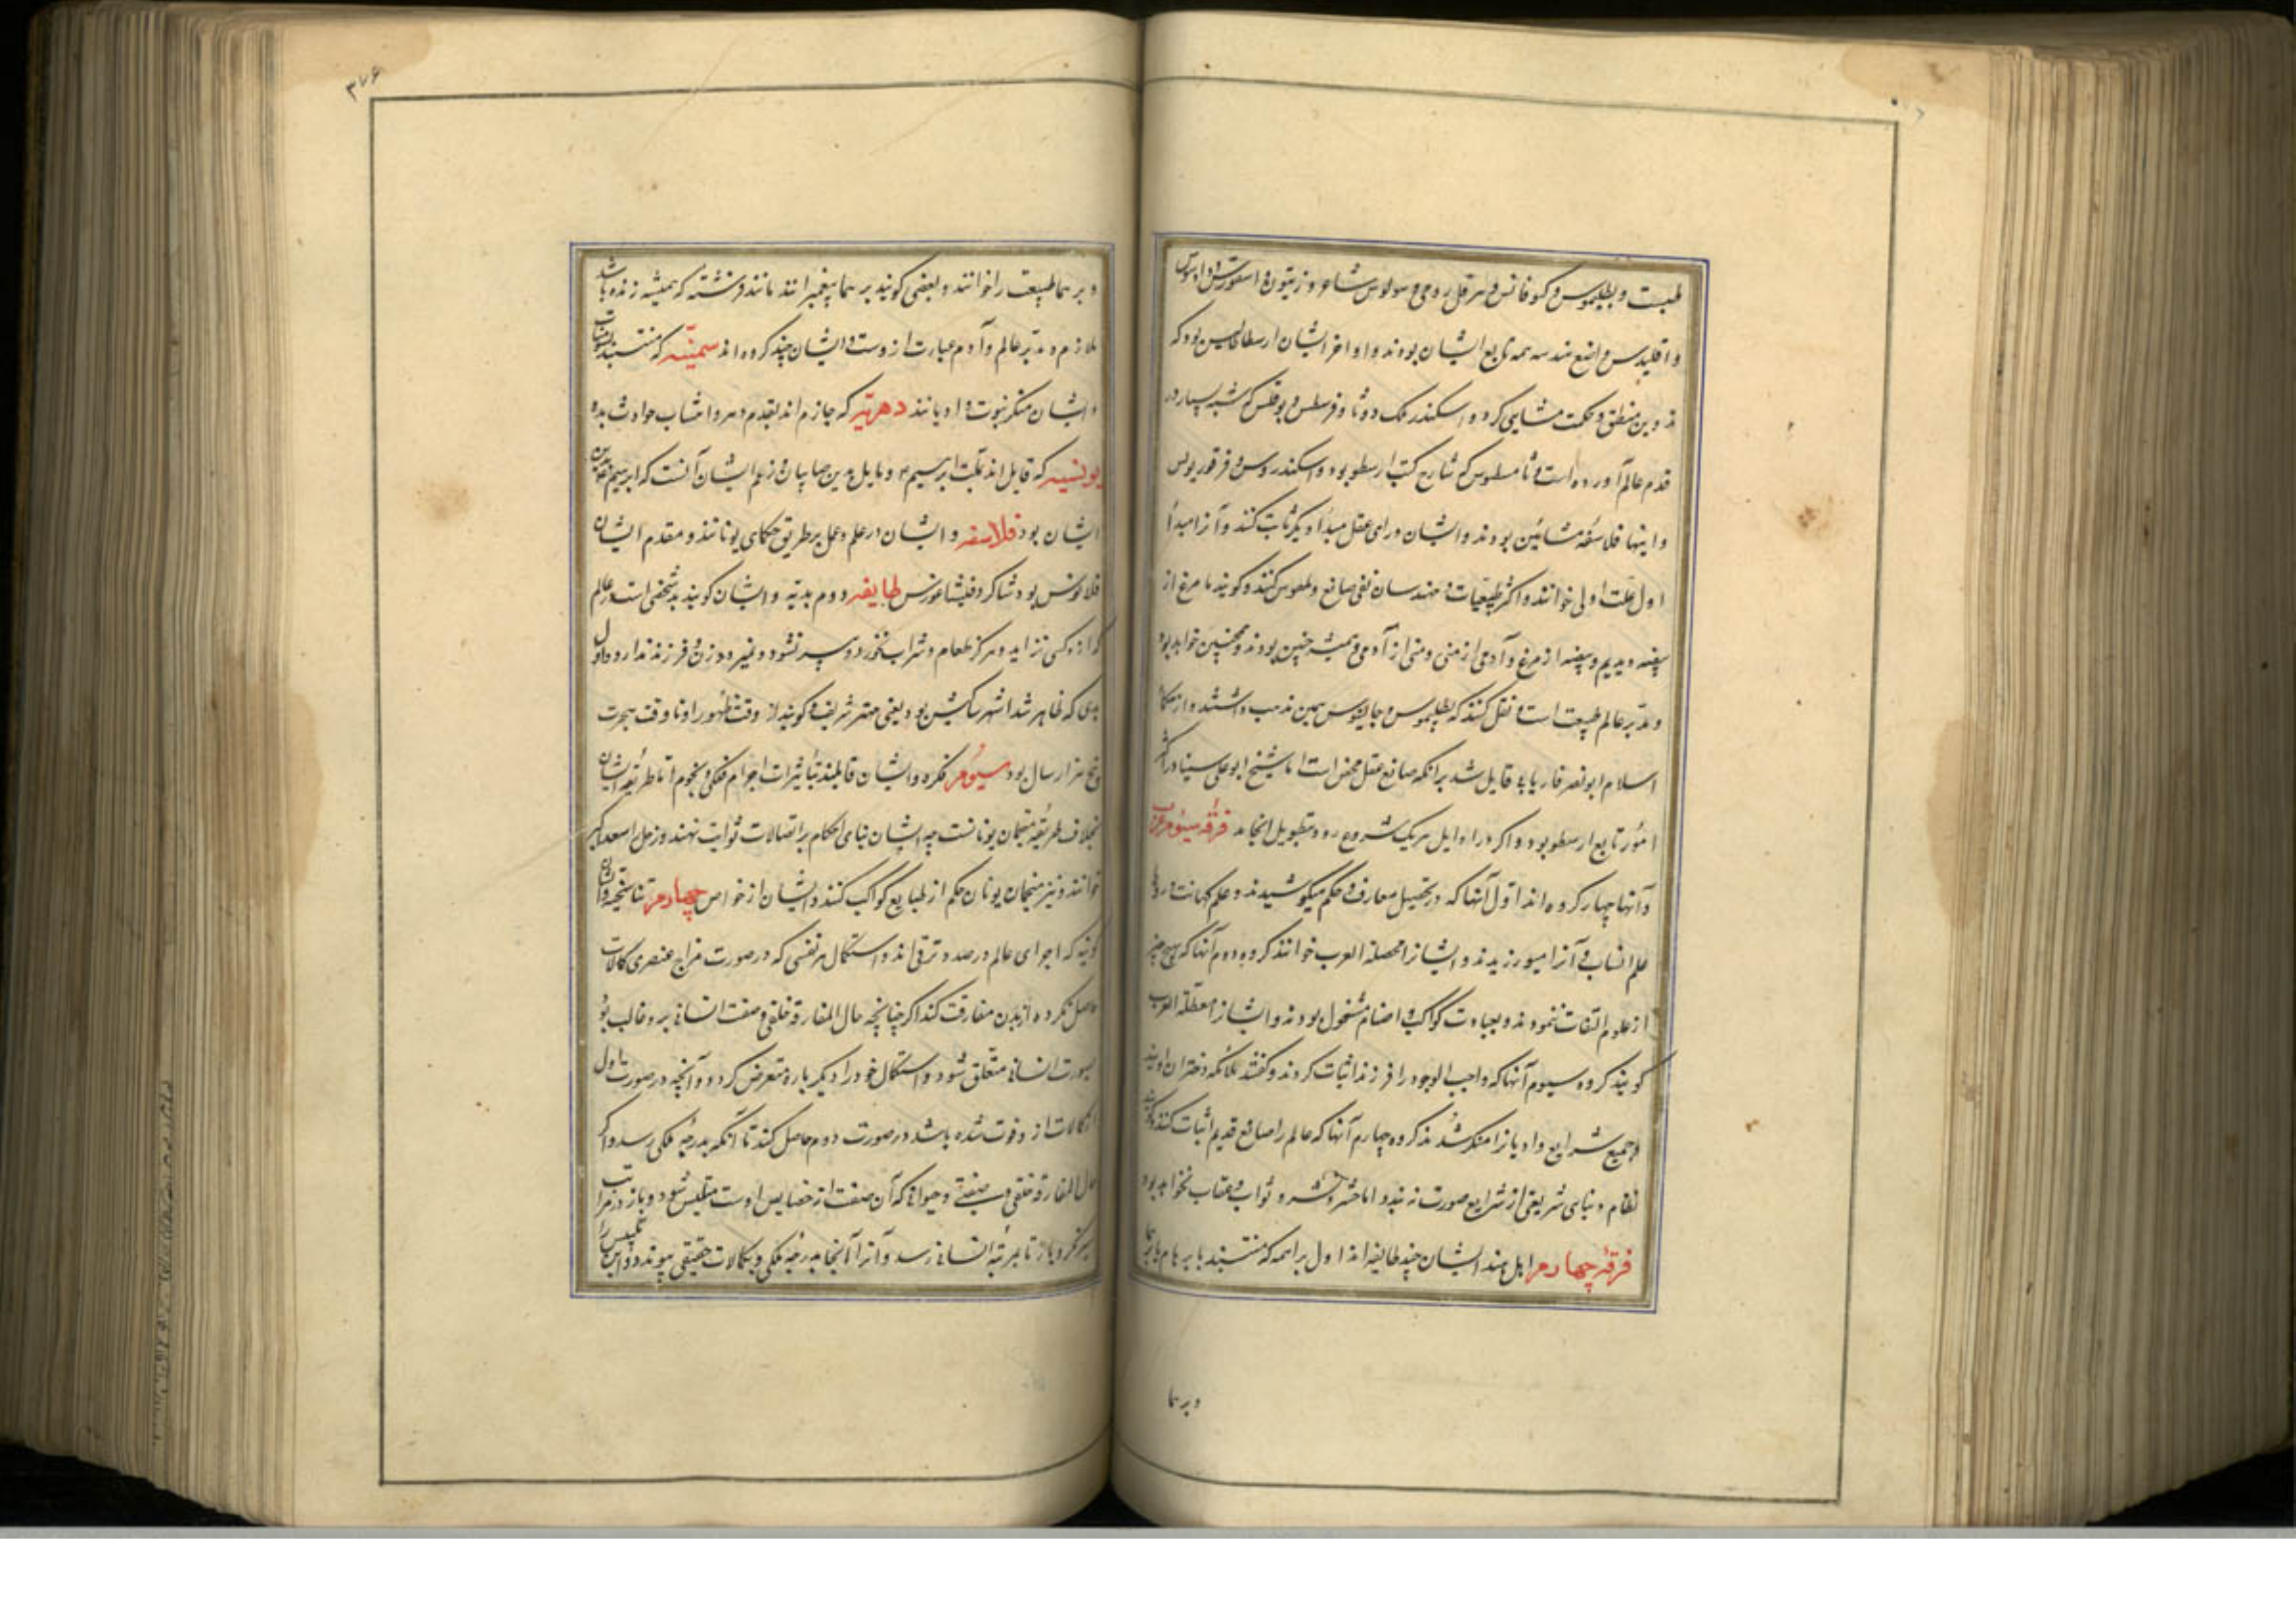 طبیعت و بطلیموس و کوفانس و هرقل رومی و سولوس شاعر و زیتون و
و اقلیدس واضع هندسه همه تابع ایشان بودند و اواخر ایشان ارسطاطالیس بود که
تدوین منطق و حکمت مشایی کرد و اسکندر ملک و که شبه بسیار در
قدم عالم آورده است و ثامسطیوس که شارح کتب ارسطو بود و اسکندروس و فرفوریوس
و اینها فلاسفهٔ مشائین بودند و ایشان ورای عقل مبدأ دیگر ثابت کنند و آنرا مبدأ
اول و علت اولی خوانند و اکثر طبیعیات و مهندسان نفی صانع کنند و کویند ما مرغ از
بیضه دیدیم و بیضه از مرغ و آدمی از منی و منی از آدمی و همیشه چنین بودند و همچنین خواهد بود
و مدبر عالم طبیعت است و نقل کنند که بطلیموس و جالینوس همین مذهب داشتند و از حکما
اسلام ابونصر فاریابی قایل شد برانکه صانع عقل محض است اما شیخ ابوعلی سینا در اکثر
امور تابع ارسطو بود و اکر در اراء ایل هریک شروع رود بتطویل انجامد فرقه سیوم عرب
و آنها چهار کروه اند اول آنها که در تحصیل معارف و حکم میکوشیدند و علم کهانت و رؤیا
علم انساب و آنرا میورزیدند و ایشانرا محصلة العرب خوانند کروه دوم آنها که بهیچ چیز
از علوم التفات ننمودند و بعبادت کواکب و اصنام مشغول بودند و ایشانرا معطلة العرب
کویند کروه سیوم آنها که واجب الوجود را فرزند اثبات کردند و کفتند ملائکه دختران اویند
و جمیع شرایع و ادیانرا منکر شدند کروه چهارم آنها که عالم را صانع قدیم اثبات کنند و کویند
نظام دنیای شریفی از شرایع صورت نبندد اما حشر و نشر و ثواب و عقاب نخواهد بود
فرقهٔ چهارم اهل هند ایشان چند طایفه اند اول براهمه که منتسبند بابرهام یا برهما
و برهما
۳۷۶
و برهما طبیعت را خوانند و بعضی کویند برهما پیغمبرانند مانند فرشته که همیشه زنده باشد
ملازم و مدبر عالم و آدم عبارت از وست و ایشان چند کروه اند سمنیه که منتسبند
و ایشان منکر نبوت و ادیانند دهریه که جازم اند بقدم دهر و انتساب حوادث بدو
که قایل اند بملت ابرهیم و مایل بدین صابیان و زعم ایشان آنست که ابرهیم
ایشان بود فلاسفه و ایشان در علم و عمل بر طریق حکمای یونانند و مقدم ایشان
فلانوس بود شاکرد فیثاغورس طایفه دوم بدیه و ایشان کویند بد شخصی است در عالم
که از کسی نزاید و هرکز طعام و شراب نخورد و پیر نشود و نمیرد و زن و فرزند ندارد و اول
بدی که ظاهر شد اشهر ساکیش بود یعنی مهتر شریف و کویند از وقت ظهور او تا وقت هجرت
پنج هزار سال بود سیوم فکره و ایشان قایلند بتأثیرات اجرام فلکی و نجوم اما طریقه ایشان
بخلاف طریقه منجمان یونانست چه ایشان بنای احکام بر اتصالات ثوابت نهند و زحل را سعد اکبر
خوانند و نیز منجمان یونان حکم از طبایع کواکب کنند و ایشان از خواص چهارم تناسخیه و ایشان
کویند که اجزای عالم در صدد ترقی اند و استکمال هر نفسی که در صورت مزاج عنصری کمالات
حاصل نکرده از بدن مفارقت کند اکر چنانچه حال المفارقة خلقی و صفت انسانی برو غالب بود
بصورت انسانی متعلق شود و استکمال خود را دیکر باره متعرض کردد و آنچه در صورت اول
از کمالات از و فوت شده باشد در صورت دوم حاصل کند تا آنکه بدرجهٔ ملکی رسد و اکر
حال المفارقة خلقی و صفتی و حیوانی که آن صفت از خصایص اوست متلبس شود و باز در مراتب
سیر کرد و باز تا بمرتبه انسانی رسد و آنرا آنجا بدرجهٔ ملکی و کمالات حقیقی پیوندد و این